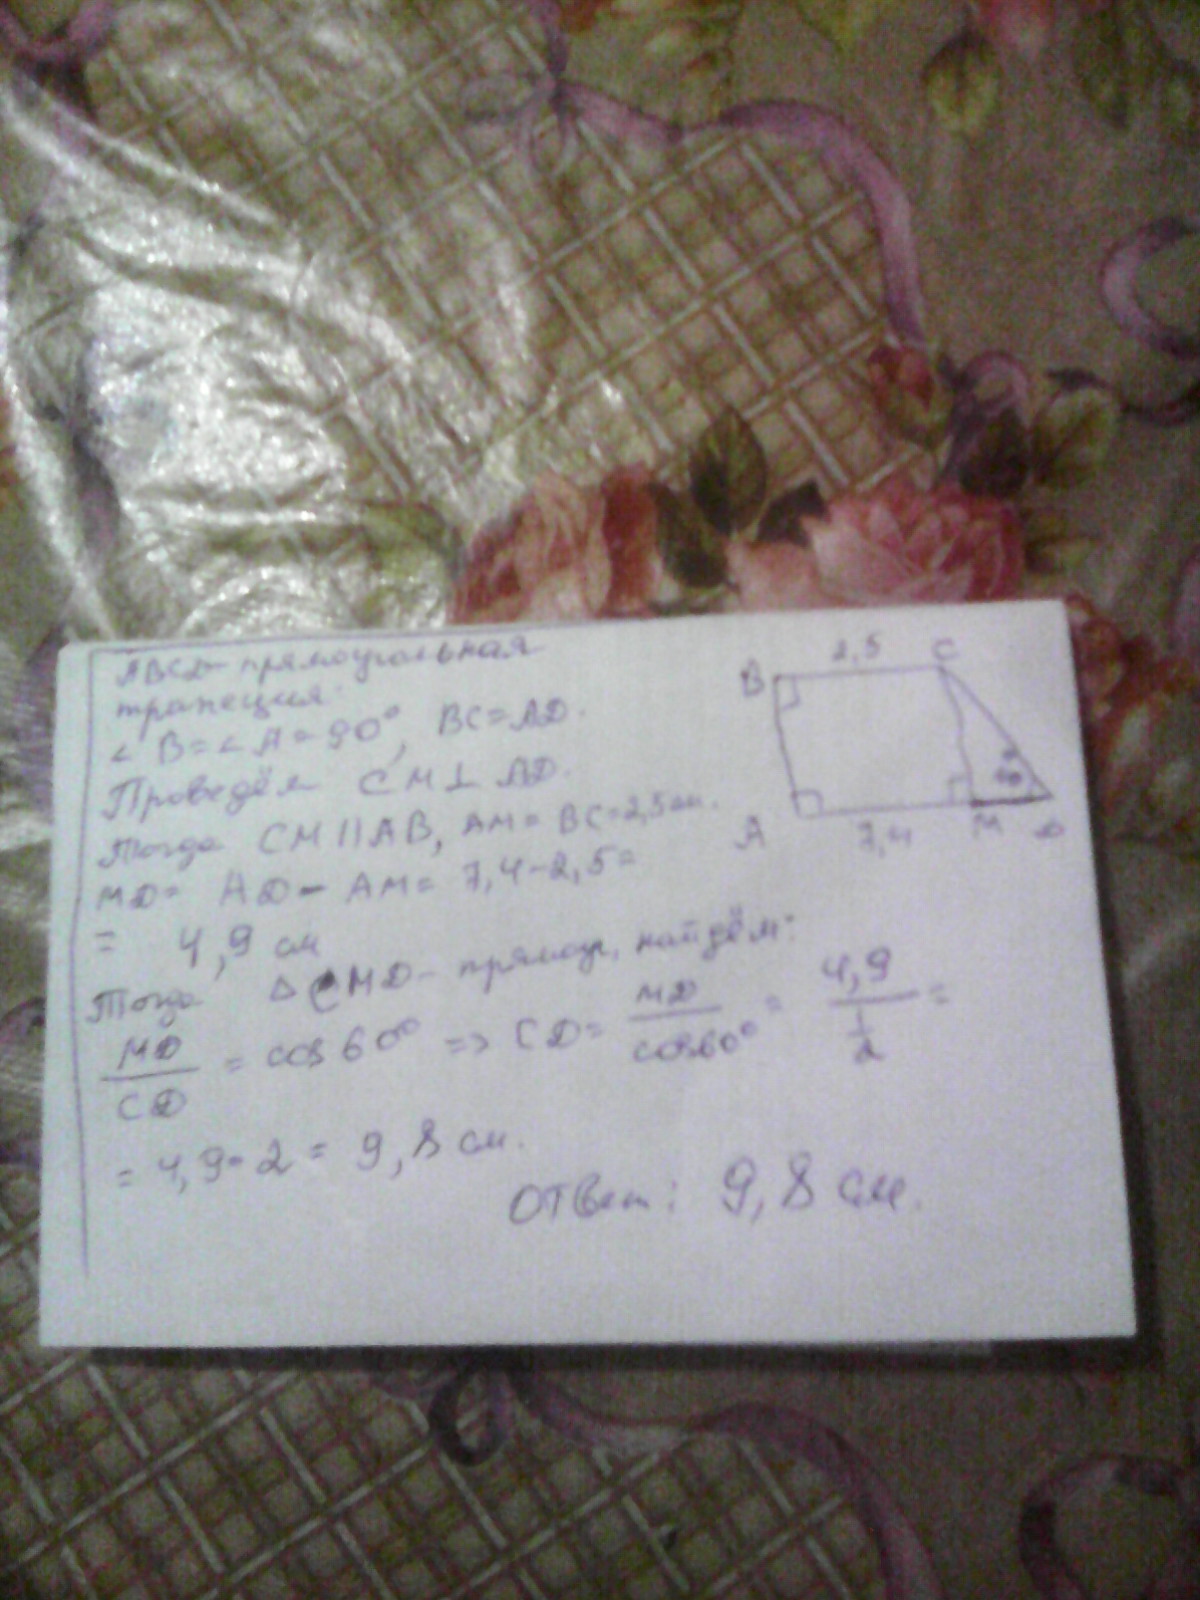 ABCD - прямоугольная
трапеция.
∠B = ∠A = 90°, BC = AD.
Проведём CM ⊥ AD.
Тогда CM || AB, AM = BC = 2,5 см.
MD = AD - AM = 7,4 - 2,5 =
= 4,9 см
Тогда △CMD - прямоуг, найдём:
MD/CD = cos 60° => CD = MD/cos60° = 4,9/(1/2) =
= 4,9 · 2 = 9,8 см.
Ответ: 9,8 см.
B 2,5 C
60°
A 7,4 M D